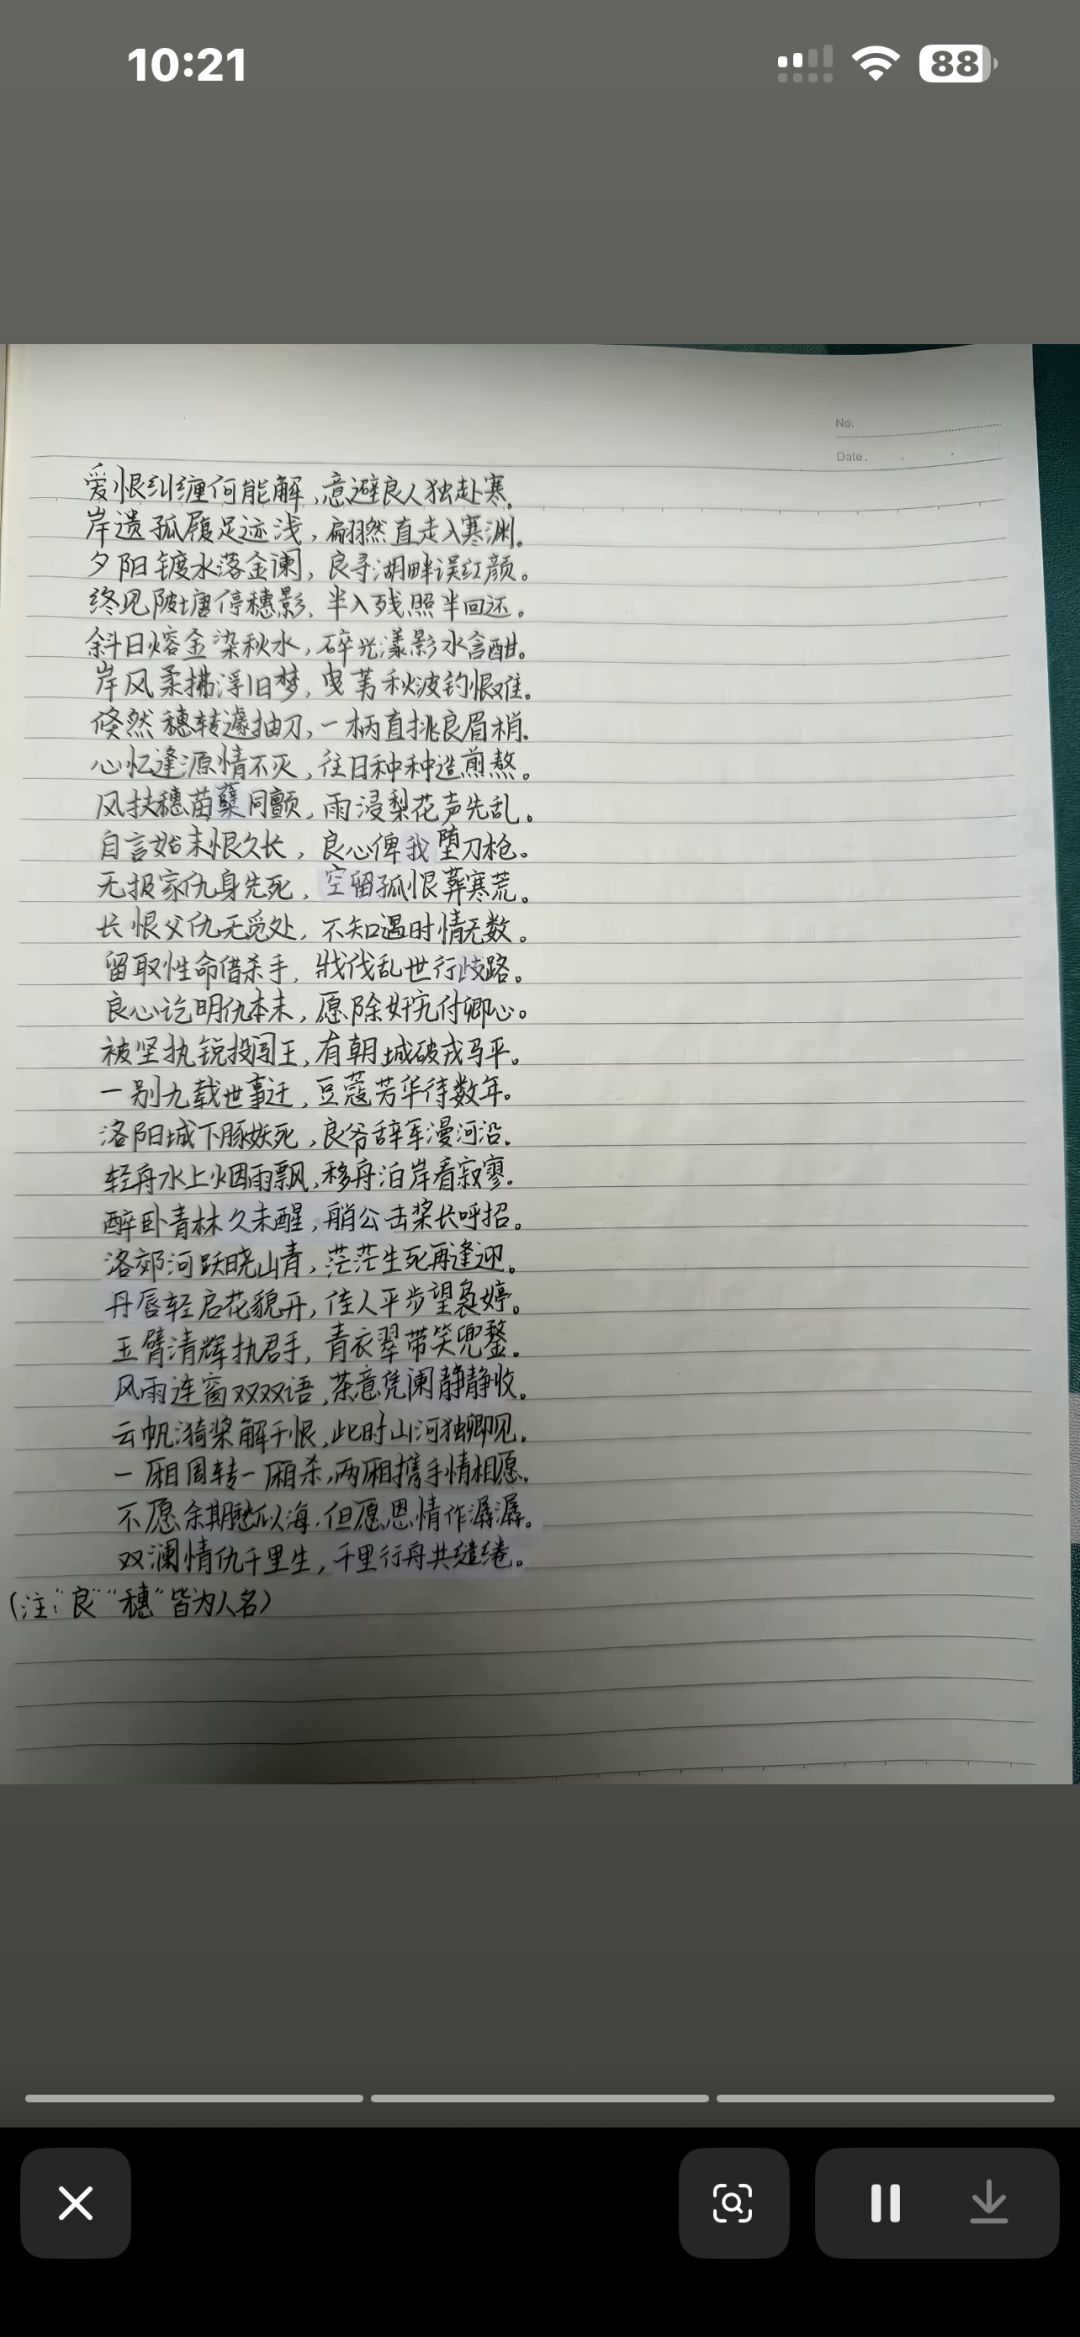 10:21
88
No.
Date.
爱恨纠缠何能解,意避良人独赴寒。
岸遗孤履足迹浅,翩然直走入寒渊。
夕阳镀水落金谰,良寻湖畔误红颜。
终见陂塘停穗影,半入残照半回还。
斜日熔金染秋水,碎光漾影水含酣。
岸风柔拂浮旧梦,曳苇秋波钓恨难。
倏然穗转遽抽刀,一柄直挑良眉梢。
心忆逢源情不灭,往日种种造煎熬。
风扶穗苗蘖同颤,雨浸梨花声先乱。
自言始末恨久长,良心俾我堕刀枪。
无报家仇身先死,空留孤恨葬寒荒。
长恨父仇无觅处,不知遇时情无数。
留取性命借杀手,戕伐乱世行歧路。
良心讫明仇本末,愿除奸宄付卿心。
被坚执锐投闯王,有朝城破戎马平。
一别九载世事迁,豆蔻芳华待数年。
洛阳城下豚妖死,良爷辞军漫河沿。
轻舟水上烟雨飘,移舟泊岸看寂寥。
醉卧青林久未醒,艄公击桨长呼招。
洛郊河跃晓山青,茫茫生死再逢迎。
丹唇轻启花貌开,佳人平步望袅婷。
玉臂清辉执君手,青衣翠带笑兜鍪。
风雨连窗双双语,茶意凭阑静静收。
云帆漪桨解千恨,此时山河独卿见。
一厢周转一厢杀,两厢携手情相愿。
不愿余期愁似海,但愿恩情作潺潺。
双澜情仇千里生,千里行舟共缱绻。
(注:"良""穗"皆为人名)